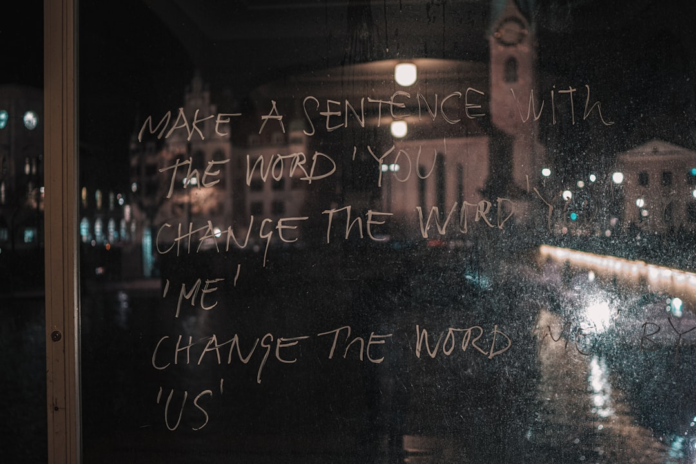 MAKE A SENTENCE WITH
THE WORD 'YOU'
CHANGE THE WORD
'ME'
CHANGE THE WORD ME BY
'US'